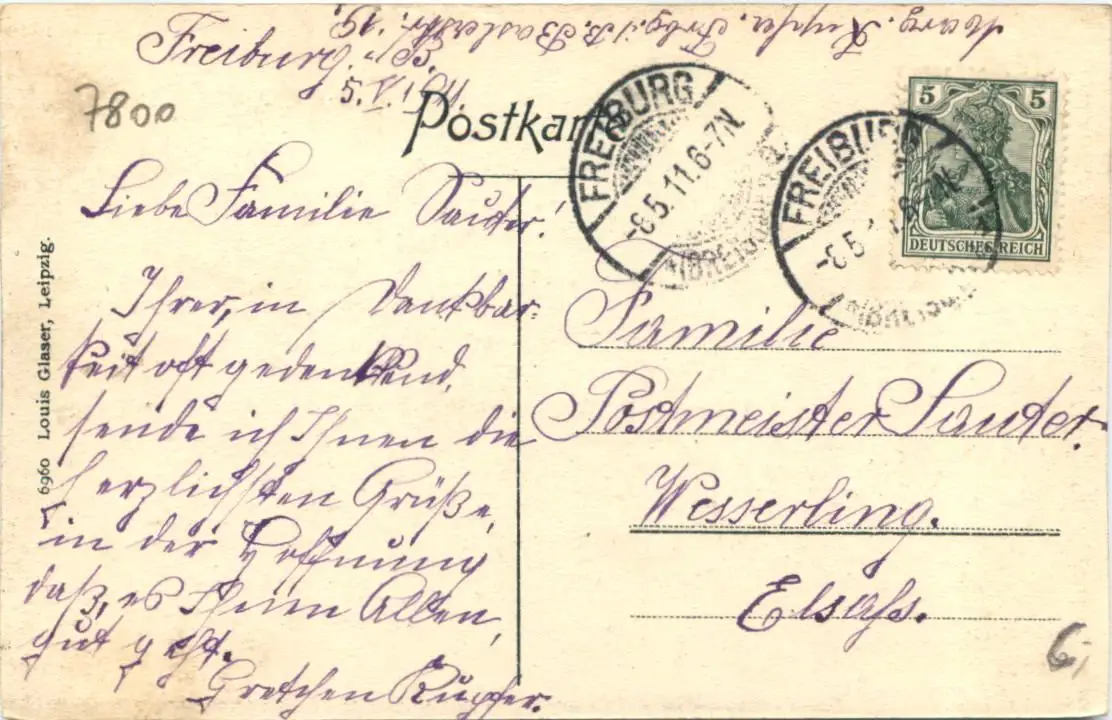 Marg. Kupfer. Frbg. i/B. Baslerstr. 19.
Freiburg i/B.
5. V. 1911.
7800
Postkarte
FREIBURG
-6.5.11.6-7N.
(BREISGAU)
FREIBURG
(BREISGAU)
5 5
DEUTSCHES REICH
Liebe Familie Sauter!
Ihrer, in Dankbar-
keit oft gedenkend,
sende ich Ihnen die
herzlichsten Grüße,
in der Hoffnung
daß, es Ihnen Allen,
gut geht.
Gretchen Kupfer.
Familie
Postmeister Sauter.
Wesserling.
Elsaß.
6,-
6960 Louis Glaser, Leipzig.